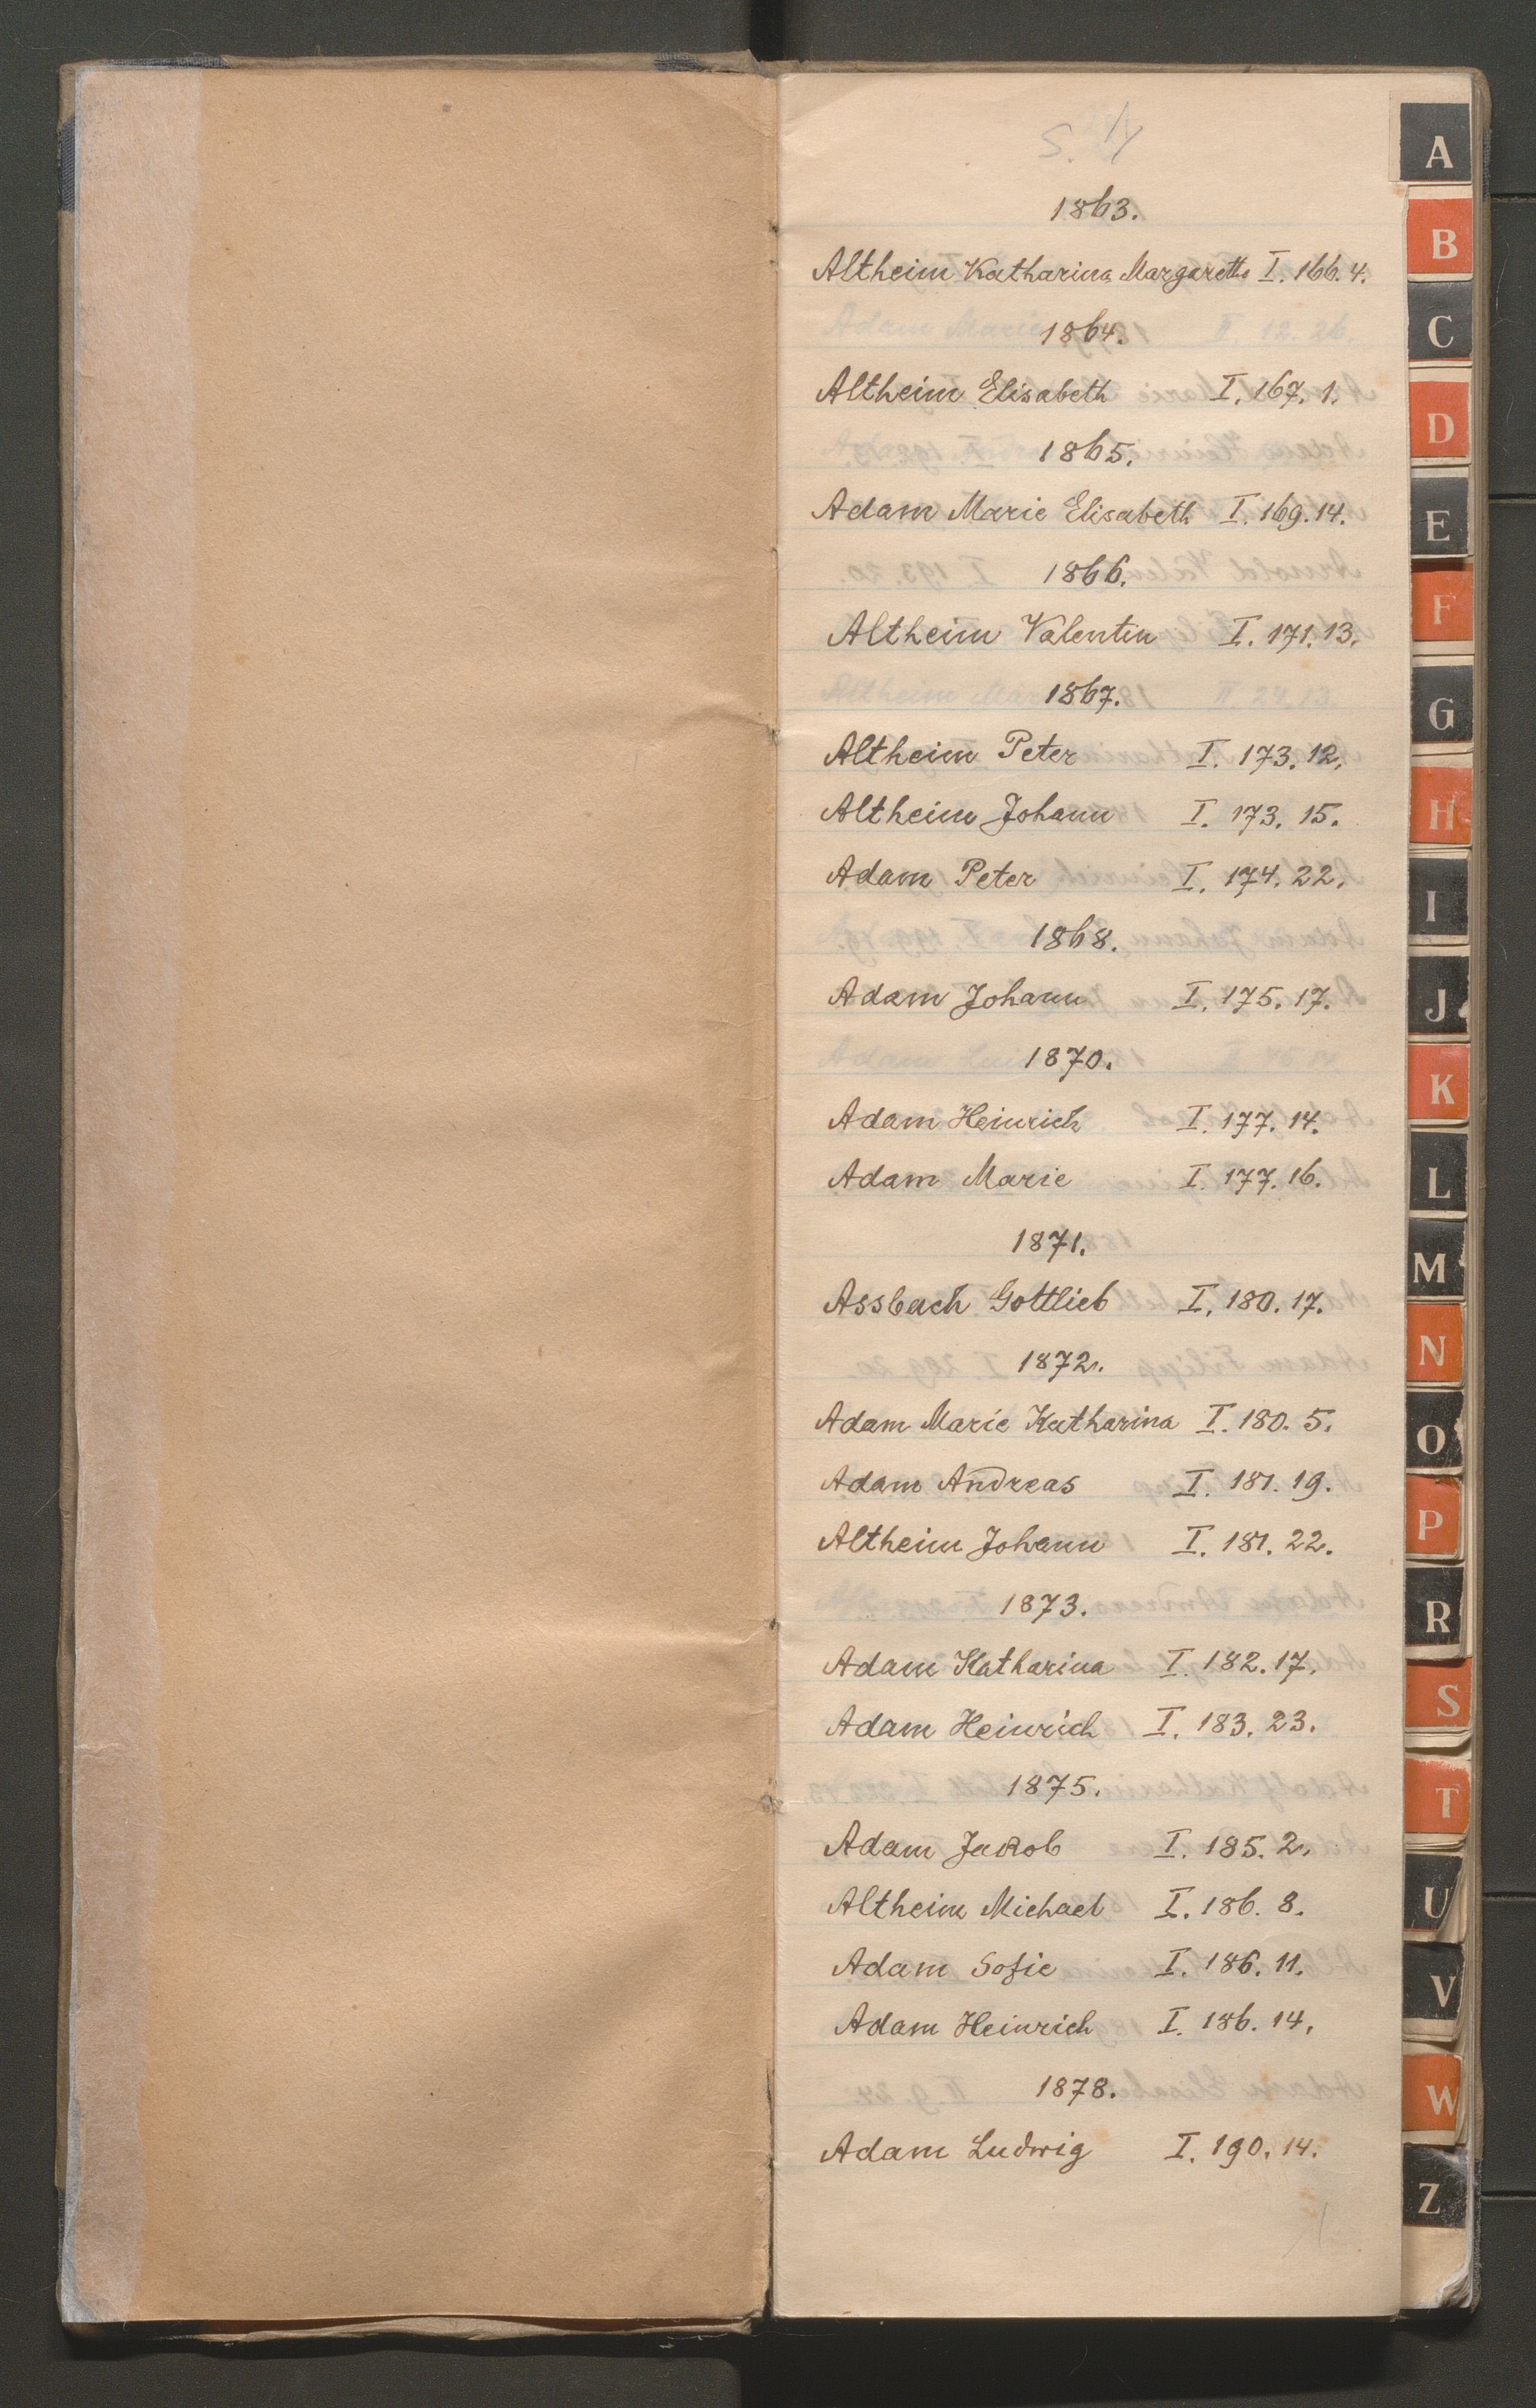 1863.
Altheim Katharina Margarethe I. 166. 4.
1864.
Altheim Elisabeth I. 167. 1.
1865.
Adam Marie Elisabeth I. 169. 14.
1866.
Altheim Valentin I. 171. 13.
1867.
Altheim Peter I. 173. 12.
Altheim Johann I. 173. 15.
Adam Peter I. 174. 22.
1868.
Adam Johann I. 175. 17.
1870.
Adam Heinrich I. 177. 14.
Adam Marie I. 177. 16.
1871.
Assbach Gottlieb I. 180. 17.
1872.
Adam Marie Katharina I. 180. 5.
Adam Andreas I. 181. 19.
Altheim Johann I. 181. 22.
1873.
Adam Katharina I. 182. 17.
Adam Heinrich I. 183. 23.
1875.
Adam Jakob I. 185. 2.
Altheim Michael I. 186. 8.
Adam Sofie I. 186. 11.
Adam Heinrich I. 186. 14.
1878.
Adam Ludwig I. 190. 14.
A
B
C
D
E
F
G
H
I
J
K
L
M
N
O
P
R
S
T
U
V
W
Z